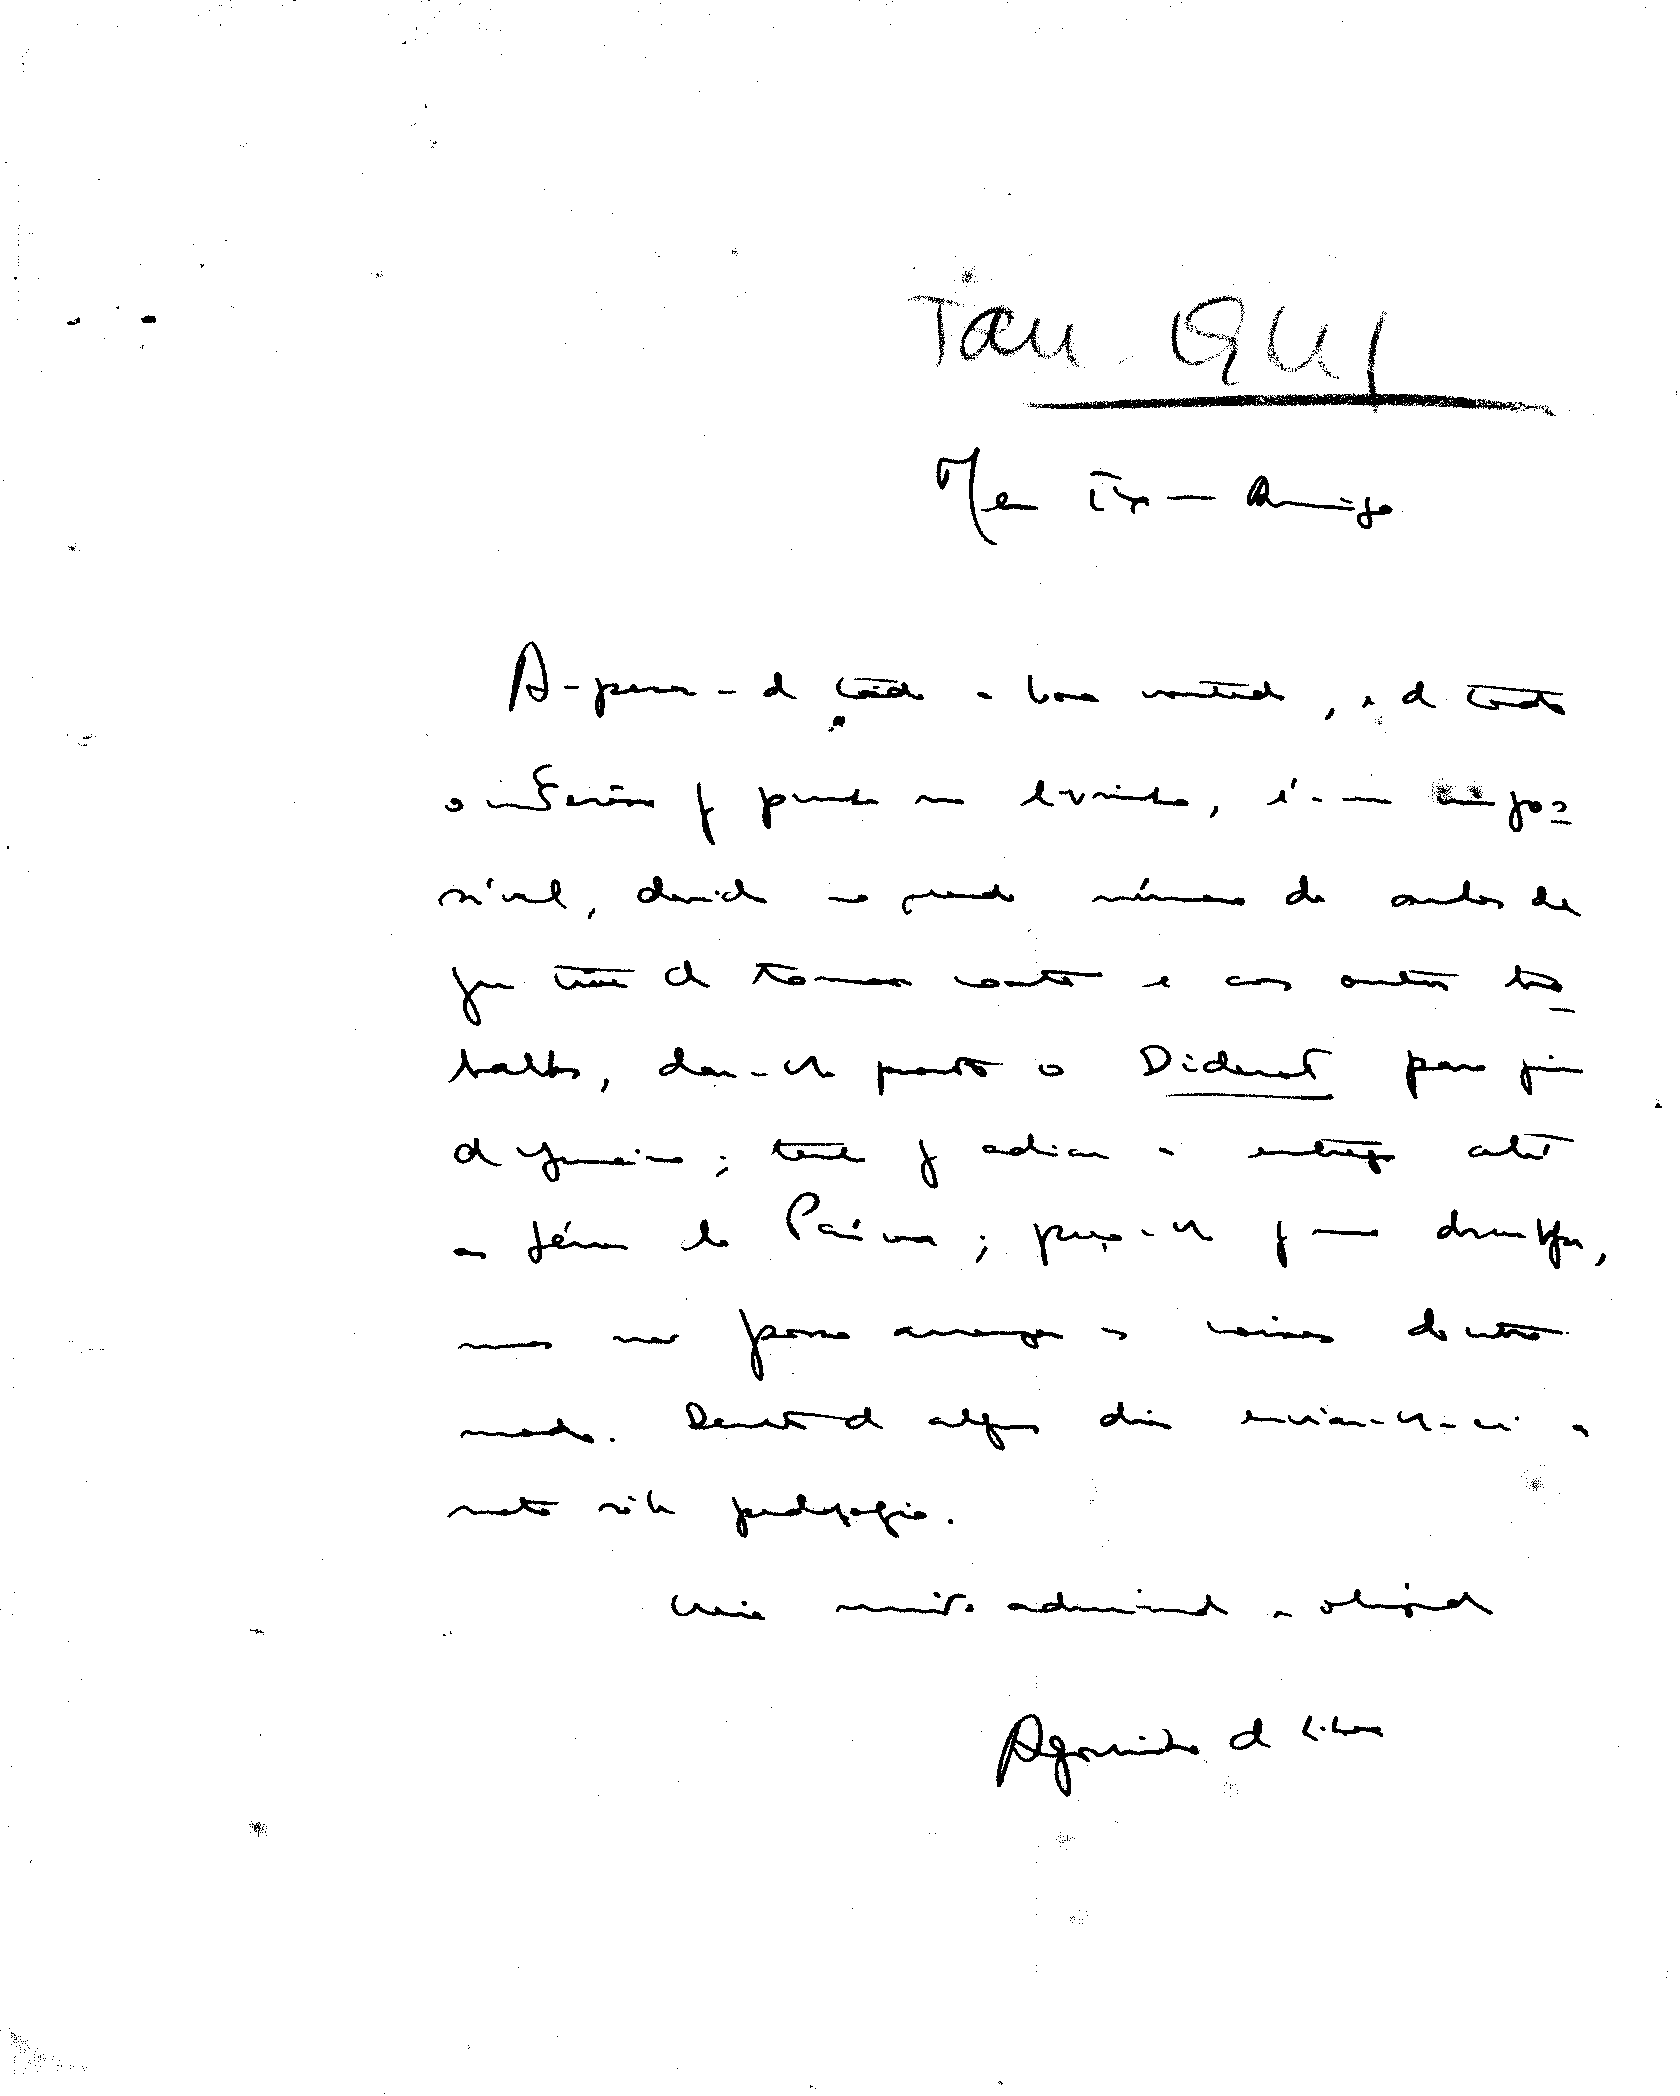 Jan. 941
Meu Ex.mo Amigo
A-pesar-de tôda a boa vontade, e de todo
o interêsse q ponho no livrinho, é-me impos-
sível, devido ao grande número de aulas de
que tive de tomar conta e aos outros tra-
balhos, dar-lhe pronto o Diderot para fim
de Janeiro; terei q adiar a entrega até
as férias da Páscoa; peço-lhe q me desculpe,
mas não posso arranjar as coisas doutro
modo. Dentro de alguns dias enviar-lhe-ei a
nota sôbre pedagogia.
Creia muito admirador e obrigado
Agostinho da Silva